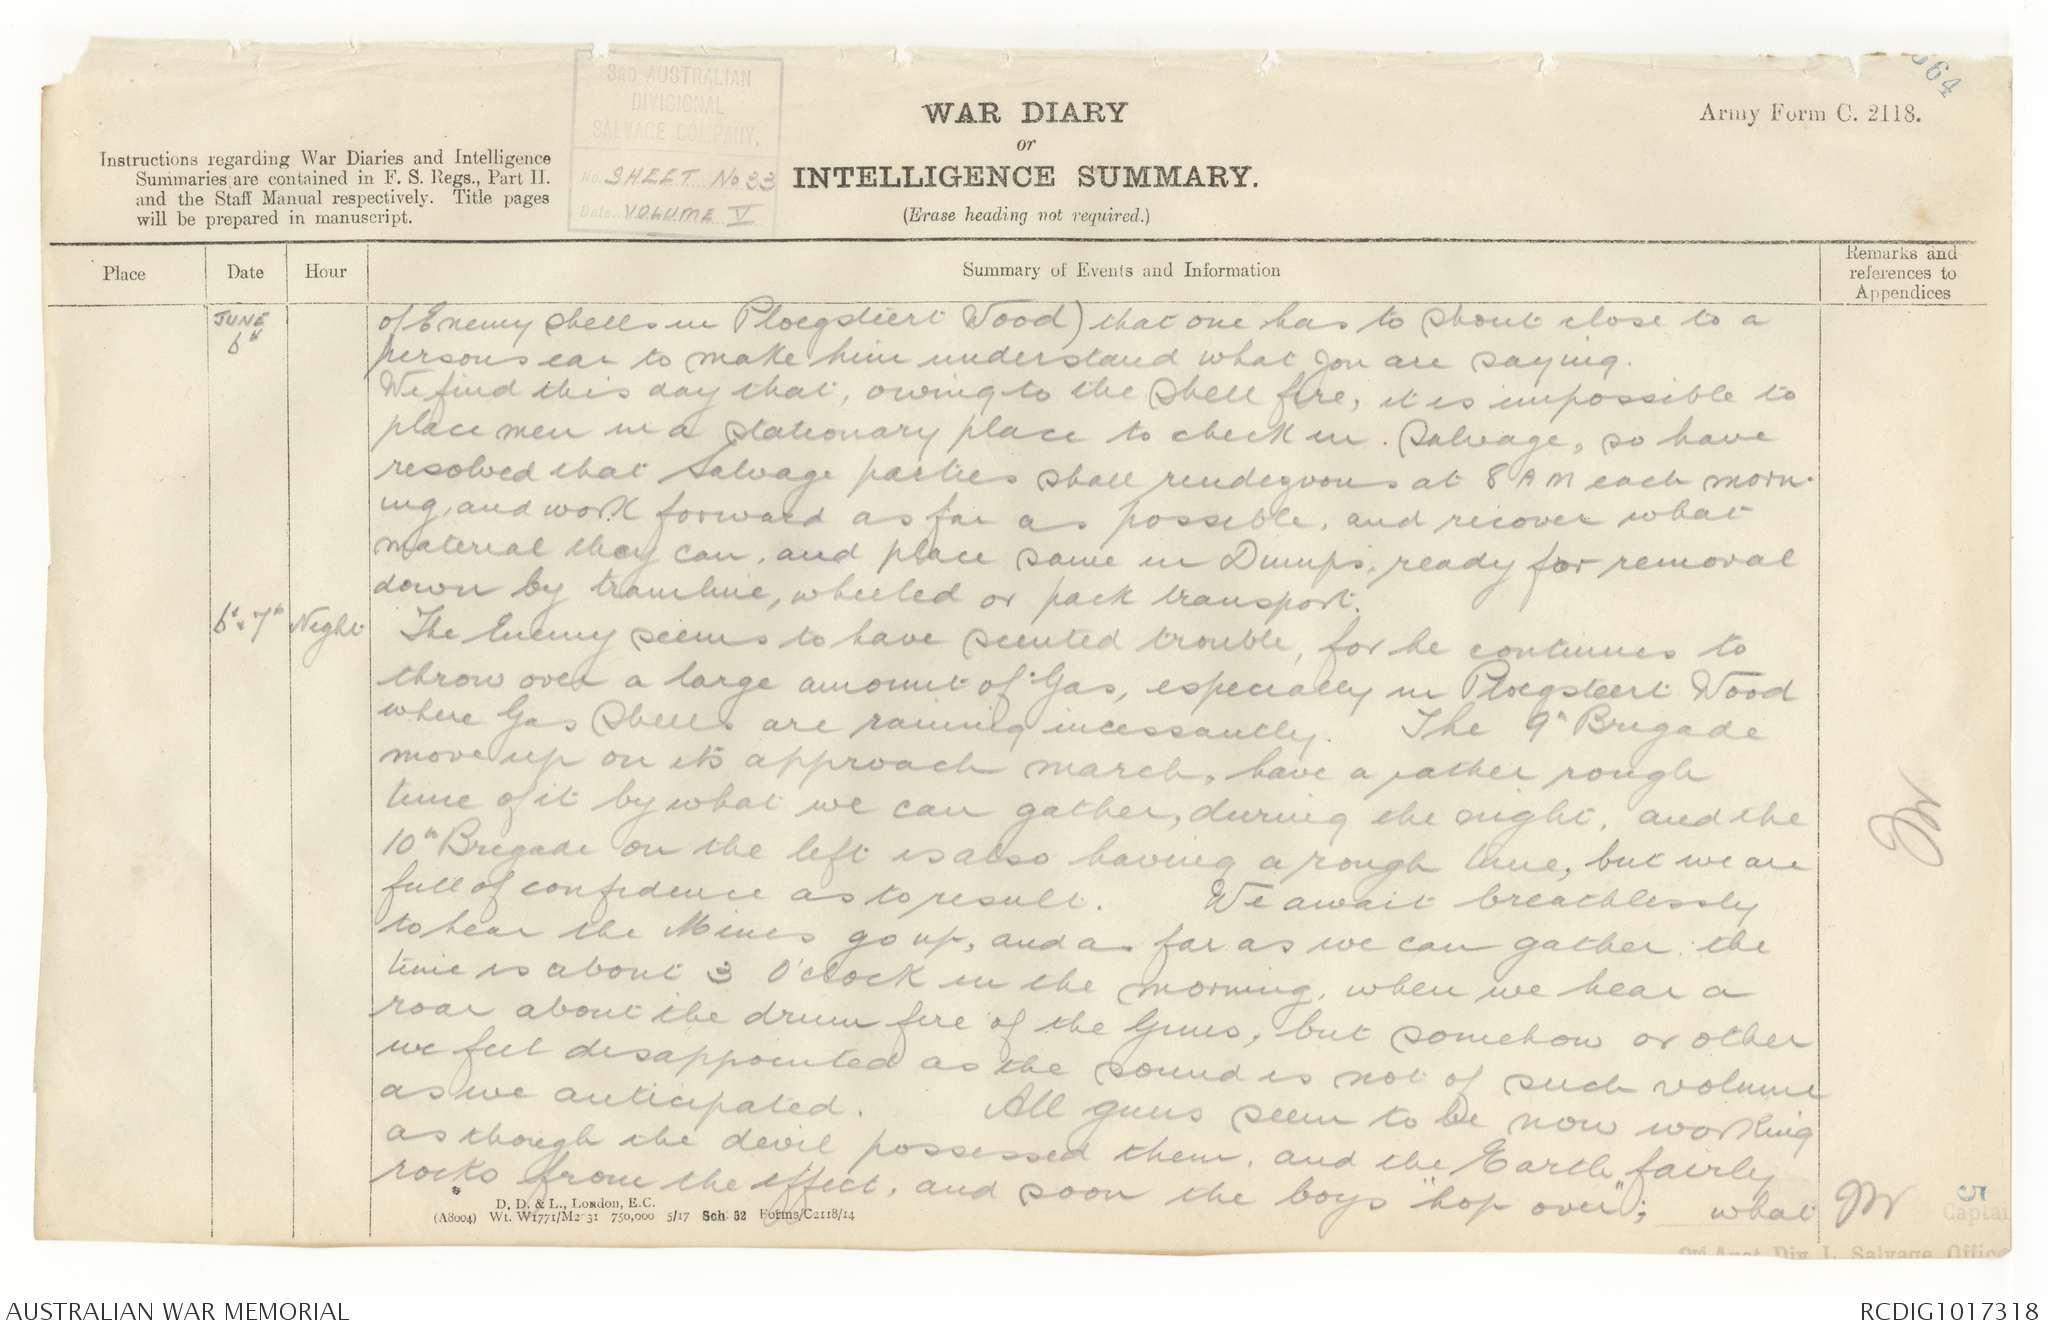 364
3RD AUSTRALIAN
DIVISIONAL
SALVAGE COMPANY.
No. SHEET No 33
Date. VOLUME V
WAR DIARY
or
INTELLIGENCE SUMMARY.
(Erase heading not required.)
Army Form C. 2118.
Instructions regarding War Diaries and Intelligence
Summaries are contained in F. S. Regs., Part II.
and the Staff Manual respectively. Title pages
will be prepared in manuscript.
Place
Date
Hour
Summary of Events and Information
Remarks and
references to
Appendices
JUNE
6th
of Enemy shells in Ploegsteert Wood) that one has to shout close to a
persons ear to make him understand what you are saying.
We find this day that, owing to the shell fire, it is impossible to
place men in a stationary place to check in. Salvage, so have
resolved that Salvage parties shall rendezvous at 8 AM each morn-
ing, and work forward as far as possible, and recover what
material they can, and place same in Dumps, ready for removal
down by tramline, wheeled or pack transport.
6th & 7th Night
The Enemy seems to have scented trouble, for he continues to
throw over a large amount of Gas, especially in Ploegsteert Wood
where Gas shells are raining incessantly. The 9th Brigade
move up on its approach march, have a rather rough
time of it by what we can gather, during the night, and the
10th Brigade on the left is also having a rough time, but we are
full of confidence as to result. We await breathlessly
to hear the Mines go up, and as far as we can gather the
time is about 3 O'clock in the morning, when we hear a
roar about the drum fire of the Guns, but somehow or other
we feel disappointed as the sound is not of such volume
as we anticipated. All guns seem to be now working
as though the devil possessed them, and the Earth fairly
rocks from the effect, and soon the boys "hop over"; what
D. D. & L., London, E.C.
(A8004) Wt. W1771/M2 31 750,000 5/17 Sch. 52 Forms/C2118/14
Captai
Aust Div L Salvage Office
AUSTRALIAN WAR MEMORIAL
RCDIG1017318